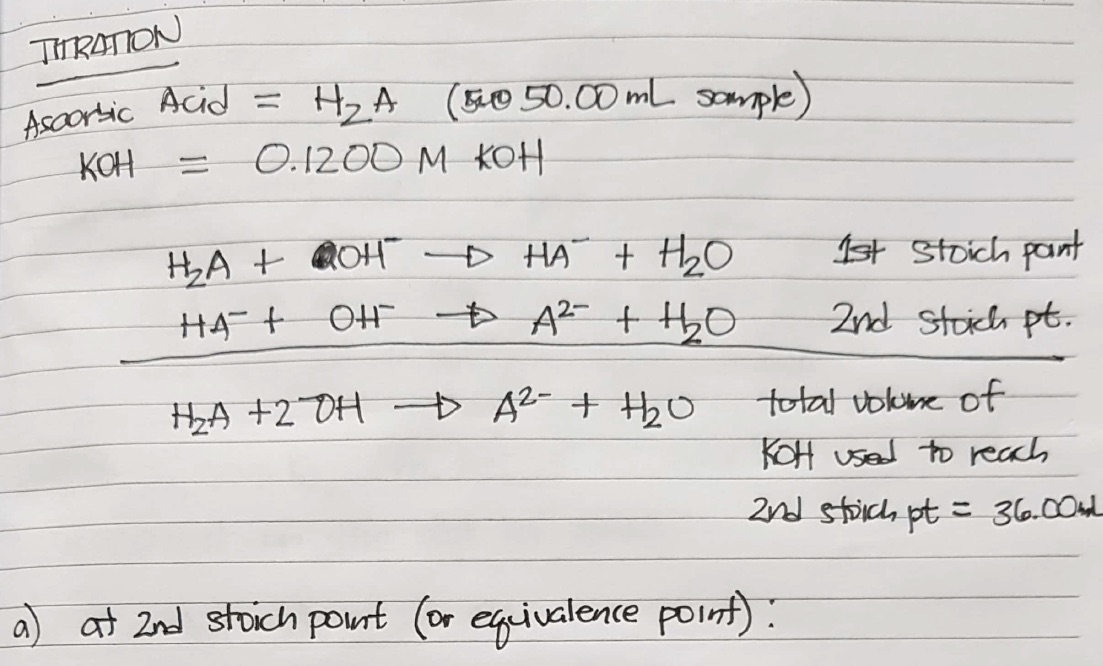 TITRATION
Ascorbic Acid = H₂A (50.00 mL sample)
KOH = 0.1200 M KOH
H₂A + OH⁻ → HA⁻ + H₂O 1st stoich point
HA⁻ + OH⁻ → A²⁻ + H₂O 2nd stoich pt.
H₂A + 2⁻OH → A²⁻ + H₂O total volume of
KOH used to reach
2nd stoich pt = 36.00mL
a) at 2nd stoich point (or equivalence point):